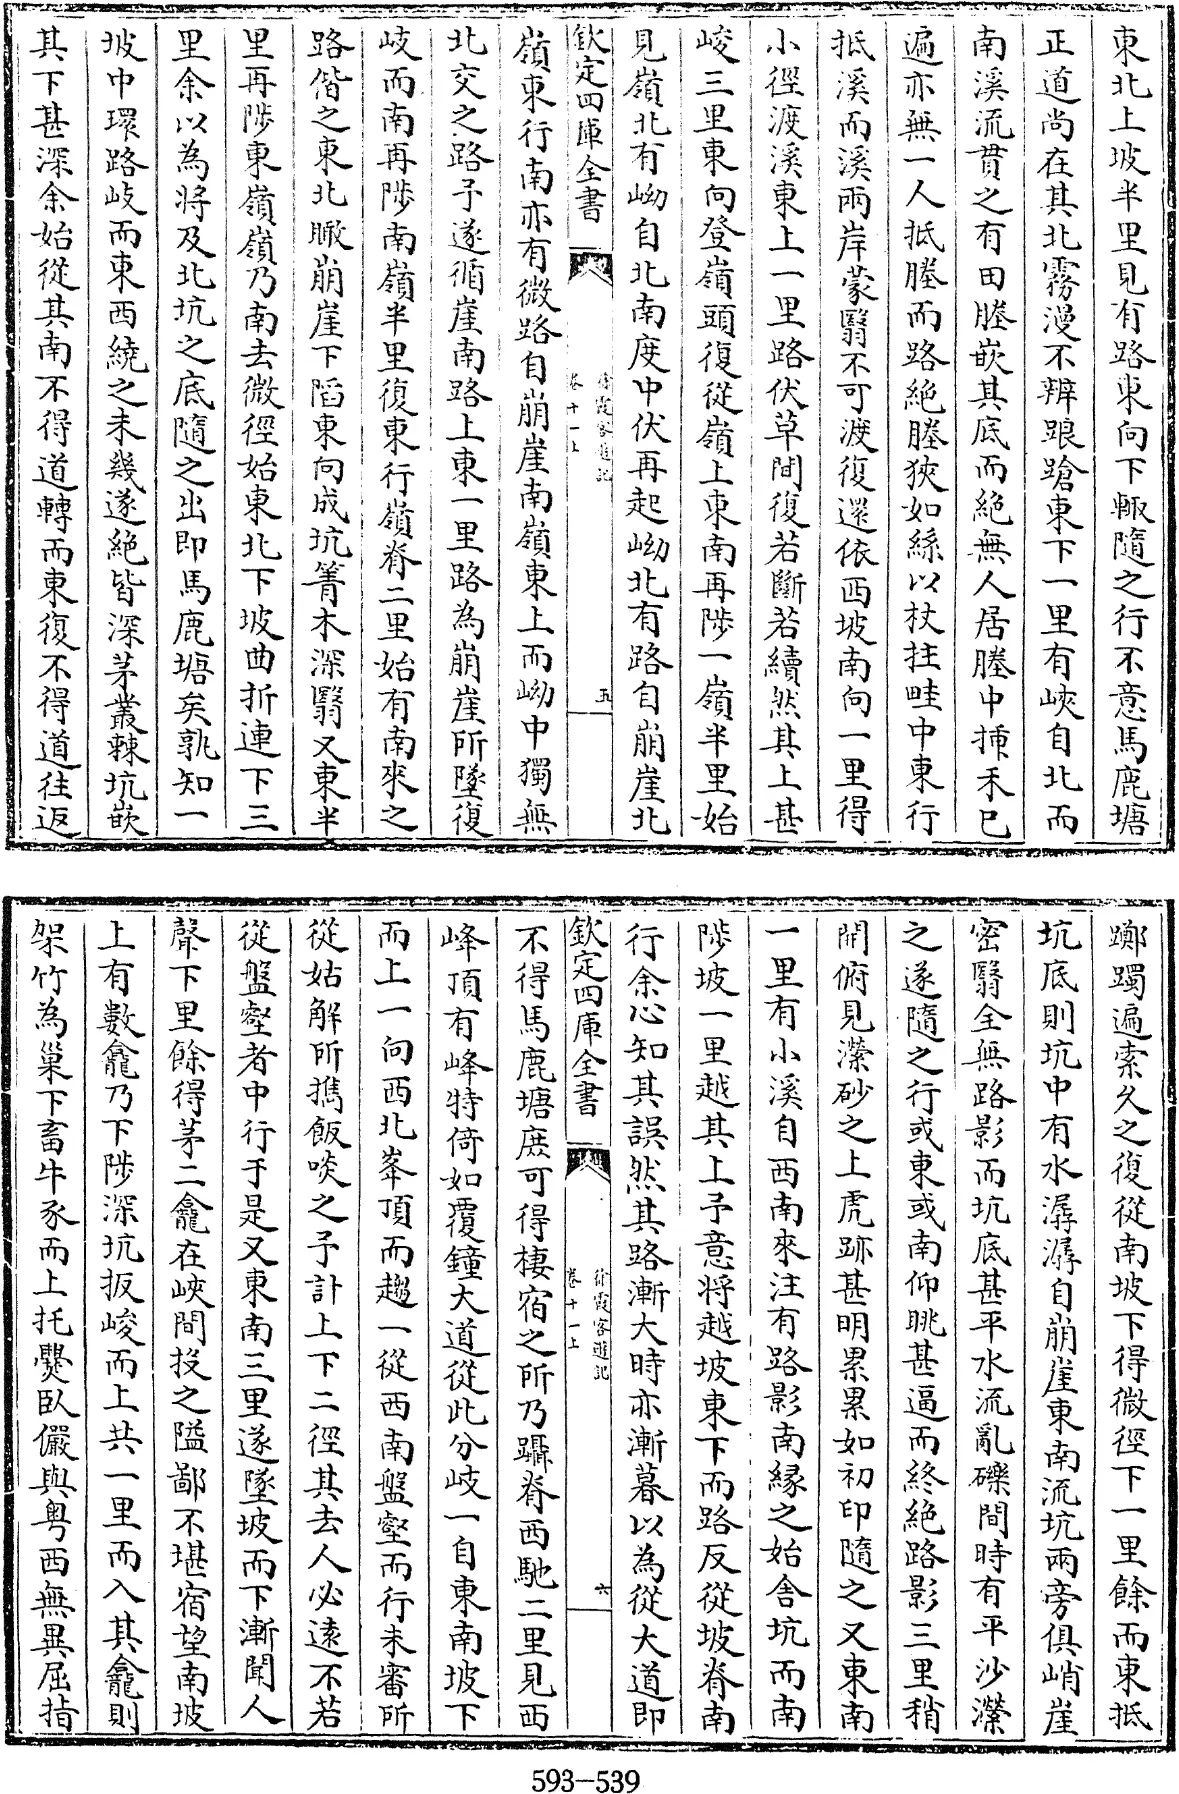 東北上坡半里見有路東向下輙隨之行不意馬鹿塘
正道尚在其北霧漫不辨踉蹌東下一里有峽自北而
南溪流貫之有田塍嵌其底而絶無人居塍中揷禾已
遍亦無一人抵塍而路絶塍狹如絲以杖拄畦中東行
抵溪而溪兩岸蒙翳不可渡復還依西坡南向一里得
小徑渡溪東上一里路伏草間復若斷若續然其上甚
峻三里東向登嶺頭復從嶺上東南再陟一嶺半里始
見嶺北有坳自北南度中伏再起坳北有路自崩崖北
欽定四庫全書
徐霞客遊記
卷十一上
五
嶺東行南亦有微路自崩崖南嶺東上而坳中獨無
北交之路予遂循崖南路上東一里路為崩崖所墜復
岐而南再陟南嶺半里復東行嶺脊二里始有南來之
路偕之東北瞰崩崖下陷東向成坑箐木深翳又東半
里再陟東嶺嶺乃南去微徑始東北下坡曲折連下三
里余以為將及北坑之底隨之出即馬鹿塘矣孰知一
坡中環路歧而東西繞之未幾遂絶皆深茅叢棘坑嵌
其下甚深余始從其南不得道轉而東復不得道往返
躑躅遍索久之復從南坡下得微徑下一里餘而東抵
坑底則坑中有水潺潺自崩崖東南流坑兩旁俱峭崖
密翳全無路影而坑底甚平水流亂礫間時有平沙瀠
之遂隨之行或東或南仰眺甚逼而終絶路影三里稍
開俯見瀠砂之上虎跡甚明累累如初印隨之又東南
一里有小溪自西南來注有路影南緣之始舍坑而南
陟坡一里越其上予意將越坡東下而路反從坡脊南
行余心知其誤然其路漸大時亦漸暮以為從大道即
欽定四庫全書
徐霞客遊記
卷十一上
六
不得馬鹿塘庶可得棲宿之所乃躡脊西馳二里見西
峰頂有峰特倚如覆鐘大道從此分岐一自東南坡下
而上一向西北峯頂而趨一從西南盤壑而行未審所
從姑解所攜飯啖之予計上下二徑其去人必遠不若
從盤壑者中行于是又東南三里遂墜坡而下漸聞人
聲下里餘得茅二龕在峽間投之隘鄙不堪宿望南坡
上有數龕乃下陟深坑扳峻而上共一里而入其龕則
架竹為巢下畜牛豕而上托爨臥儼與粤西無異屈指
593-539